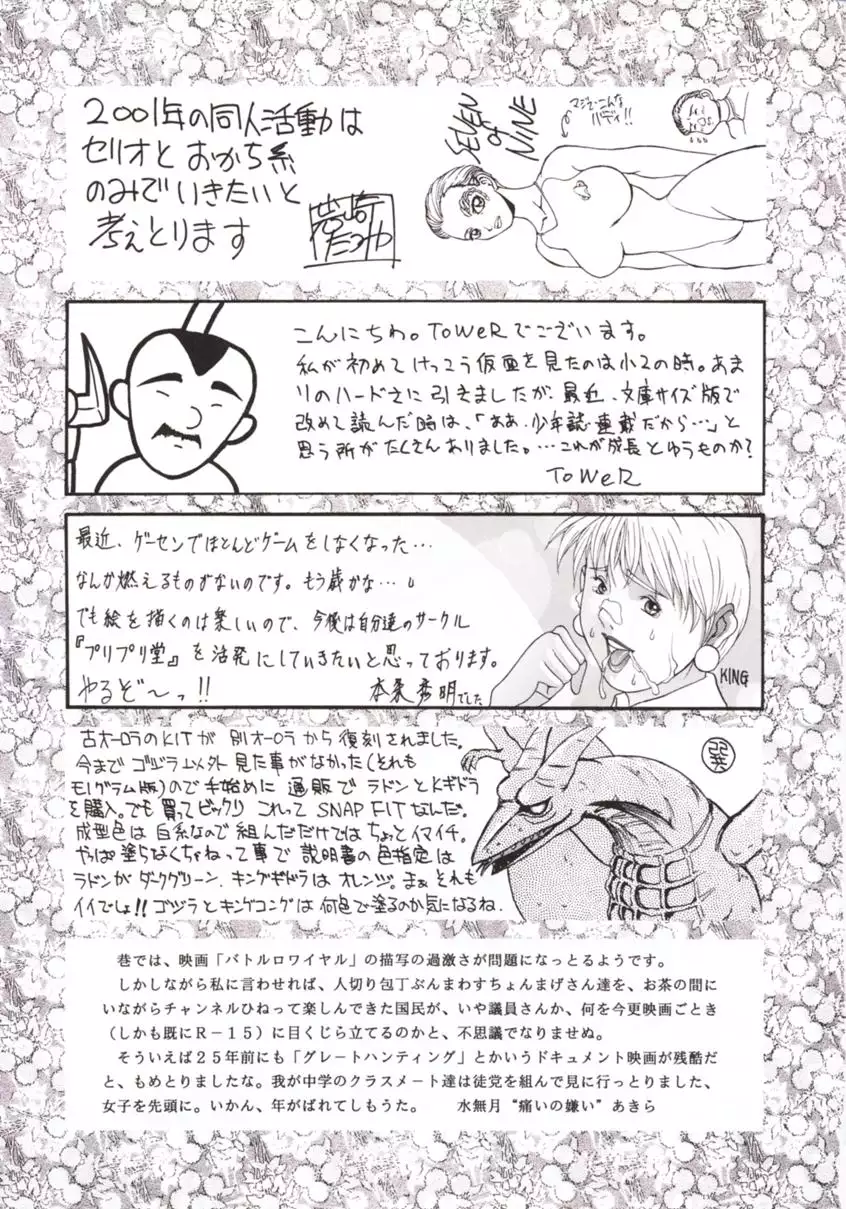 2001年の同人活動は
セリオと おかち系
のみでいきたいと
考えとります
SEVEN
of
NINE
マジでこんな
バディ!!
こんにちわ。ToWeRでございます。
私が初めてけっこう仮面を見たのは小2の時。あま
りのハードさに引きましたが、最近、文庫サイズ版で
改めて読んだ時は、「ああ、少年誌連載だから…」と
思う所がたくさんありました。…これが成長とゆうものか?
ToWeR
最近、ゲーセンでほとんどゲームをしなくなった…
なんか燃えるものがないのです。もう歳かな…
でも絵を描くのは楽しいので、今後は自分達のサークル
『プリプリ堂』を活発にしていきたいと思っております。
やるぞ〜っ!!
本条秀明でした
KING
古オーロラのKITが 別オーロラから復刻されました。
今まで ゴジラム以外 見た事がなかった(それも
モノグラム版)ので 手始めに 通販で ラドンとKギドラ
を購入。でも買ってビックリ これって SNAP FITなんだ。
成型色は 白系なので 組んだだけでは ちょっとイマイチ。
やっぱ塗らなくちゃねって事で 説明書の色指定は
ラドンが ダークグリーン、キングギドラは オレンジ。まぁ それも
イイでしょ!! ゴジラと キングコングは 何色で塗るのか気になるね.
巷では、映画「バトルロワイヤル」の描写の過激さが問題になっとるようです。
しかしながら私に言わせれば、人切り包丁ぶんまわすちょんまげさん達を、お茶の間に
いながらチャンネルひねって楽しんできた国民が、いや議員さんか、何を今更映画ごとき
(しかも既にR-15)に目くじら立てるのかと、不思議でなりませぬ。
そういえば25年前にも「グレートハンティング」とかいうドキュメント映画が残酷だ
と、もめとりましたな。我が中学のクラスメート達は徒党を組んで見に行っとりました、
女子を先頭に。いかん、年がばれてしもうた。 水無月“痛いの嫌い”あきら